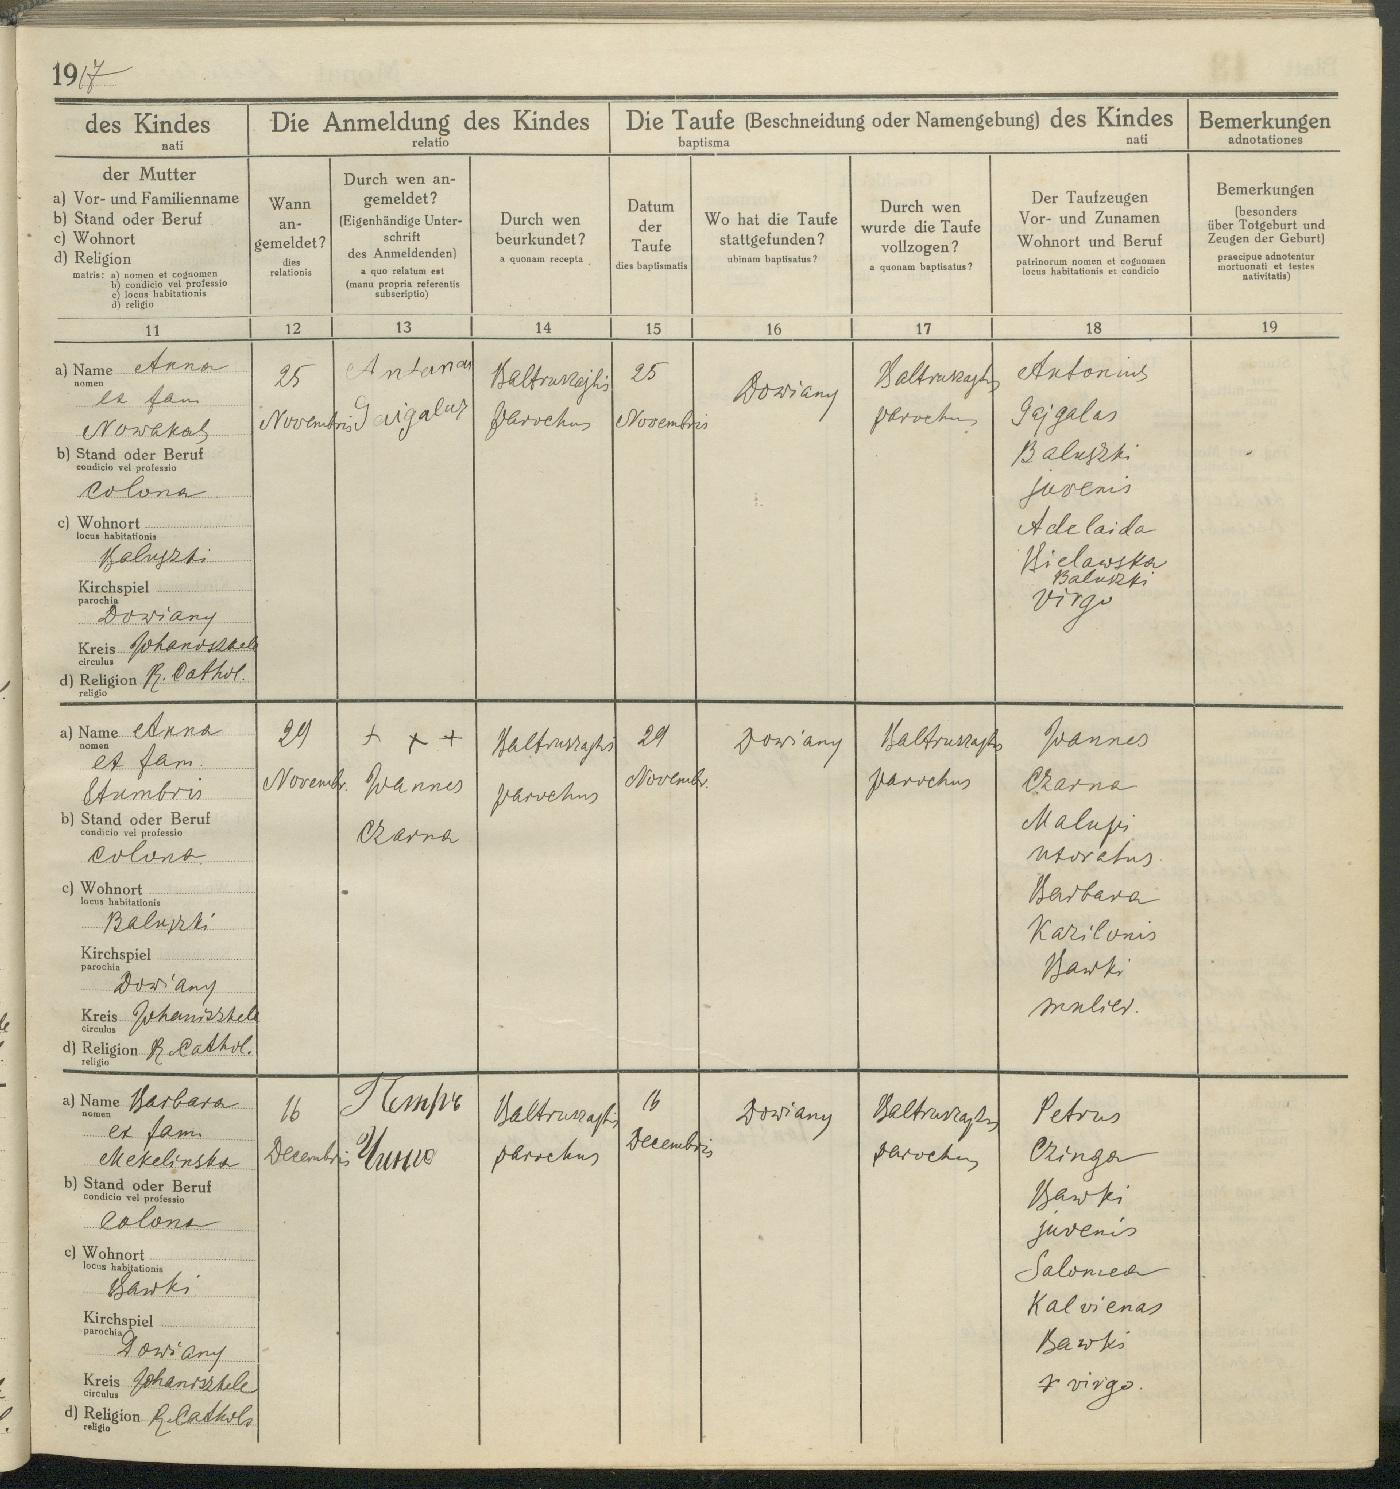 1917
des Kindes
nati
Die Anmeldung des Kindes
relatio
Die Taufe (Beschneidung oder Namengebung) des Kindes
baptisma nati
Bemerkungen
adnotationes
der Mutter
a) Vor- und Familienname
b) Stand oder Beruf
c) Wohnort
d) Religion
matris: a) nomen et cognomen
b) condicio vel professio
c) locus habitationis
d) religio
Wann
an-
gemeldet?
dies
relationis
Durch wen an-
gemeldet?
(Eigenhändige Unter-
schrift
des Anmeldenden)
a quo relatum est
(manu propria referentis
subscriptio)
Durch wen
beurkundet?
a quonam recepta
Datum
der
Taufe
dies baptismatis
Wo hat die Taufe
stattgefunden?
ubinam baptisatus?
Durch wen
wurde die Taufe
vollzogen?
a quonam baptisatus?
Der Taufzeugen
Vor- und Zunamen
Wohnort und Beruf
patrinorum nomen et cognomen
locus habitationis et condicio
Bemerkungen
(besonders
über Totgeburt und
Zeugen der Geburt)
praecipue adnotentur
mortuonati et testes
nativitatis)
11 12 13 14 15 16 17 18 19
a) Name Anna
nomen
ex fam
Nowakas
b) Stand oder Beruf
condicio vel professio
colona
c) Wohnort
locus habitationis
Baluszki
Kirchspiel
parochia
Dowiany
Kreis Johaniszkele
circulus
d) Religion R. Cathol.
religio
25
Novembris
Antanas
Gaigalas
Baltruszajtis
parochus
25
Novembris
Dowiany
Baltruszajtis
parochus
Antonius
Gajgalas
Baluszki
juvenis
Adelaida
Bielawska
Baluszki
virgo
a) Name Anna
nomen
ex fam.
Stumbris
b) Stand oder Beruf
condicio vel professio
colona
c) Wohnort
locus habitationis
Baluszki
Kirchspiel
parochia
Dowiany
Kreis Johaniszkele
circulus
d) Religion R. Cathol.
religio
29
Novembr.
+ + +
Joannes
Czarna
Baltruszajtis
parochus
29
Novembr.
Dowiany
Baltruszajtis
parochus
Joannes
Czarna
Malupi
uxoratus.
Barbara
Kazilonis
Bawki
mulier.
a) Name Barbara
nomen
ex fam.
Mekelinska
b) Stand oder Beruf
condicio vel professio
colona
c) Wohnort
locus habitationis
Bawki
Kirchspiel
parochia
Dowiany
Kreis Johaniszkele
circulus
d) Religion R. Cathol.
religio
16
Decembris
Петръ
Baltruszajtis
parochus
16
Decembris
Dowiany
Baltruszajtis
parochus
Petrus
Czinga
Bawki
juvenis
Salomea
Kalvienas
Bawki
virgo.